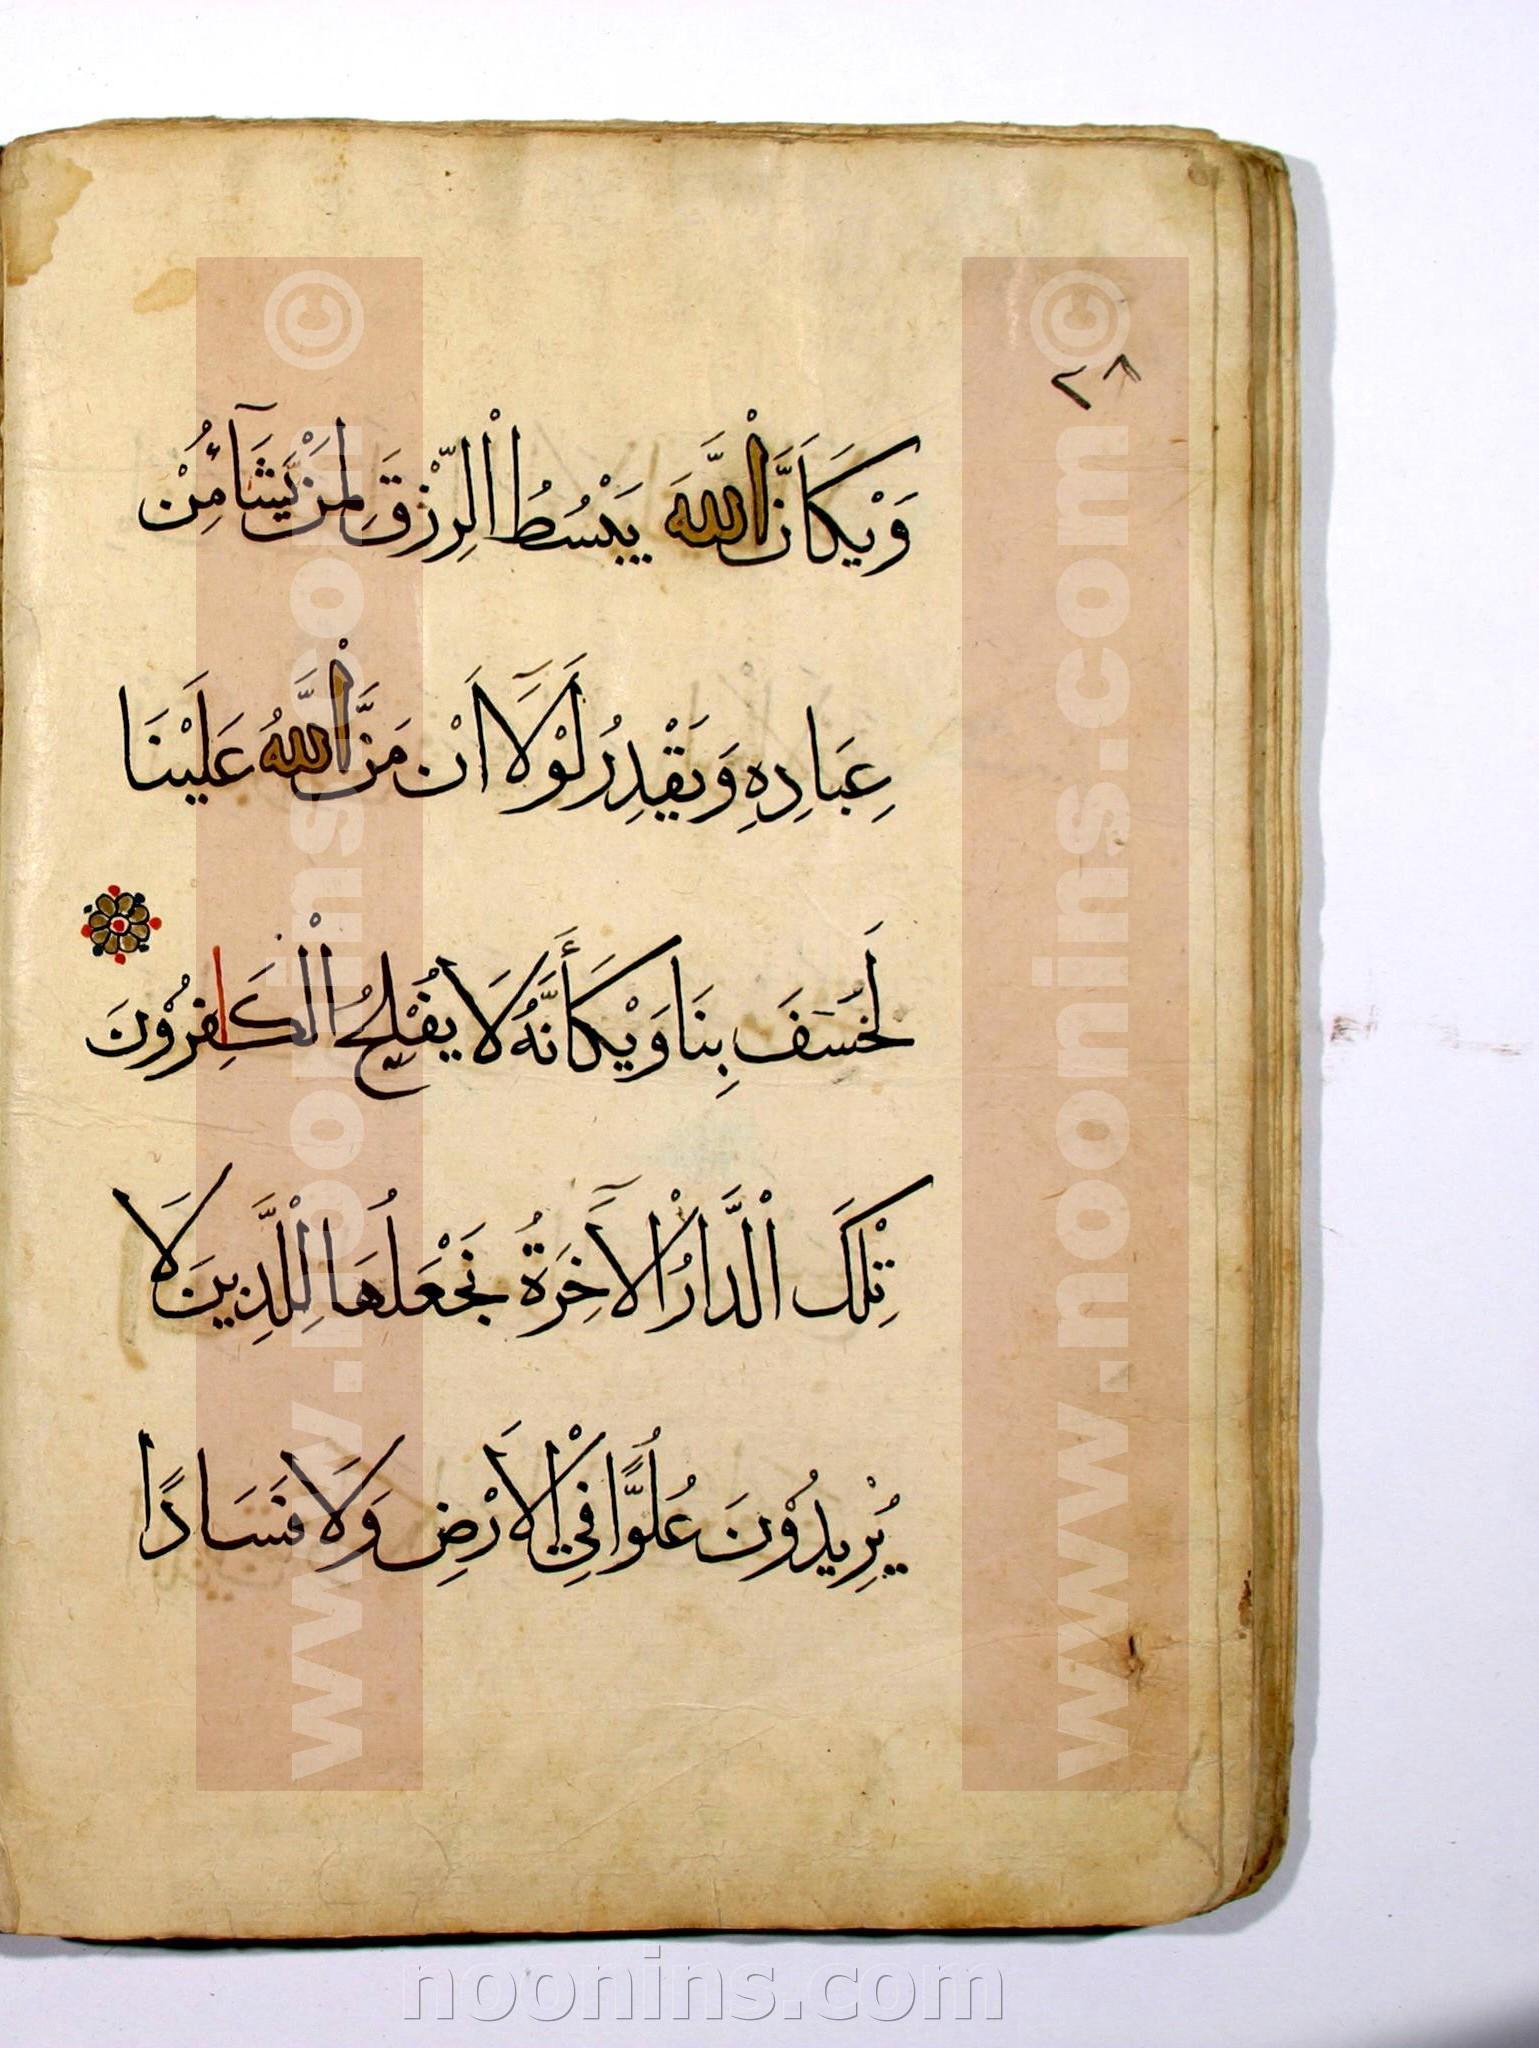 ٢٨
وَيْكَاَنَّ اللّٰهَ يَبْسُطُ الْرِّزْقَ لِمَنْ يَّشَآءُ مِنْ
عِبَادِهِ وَيَقْدِرُ لَوْلَآ اَنْ مَنَّ اللّٰهُ عَلَيْنَا
لَخَسَفَ بِنَا وَيْكَأَنَّهُ لَا يُفْلِحُ الْكَافِرُوْنَ
تِلْكَ الْدَّارُ الْآخِرَةُ نَجْعَلُهَا لِلَّذِينَ لَا
يُرِيدُوْنَ عُلُوًّا فِي الْاَرْضِ وَلَا فَسَادًا
www.noonins.com ©
www.noonins.com ©
noonins.com